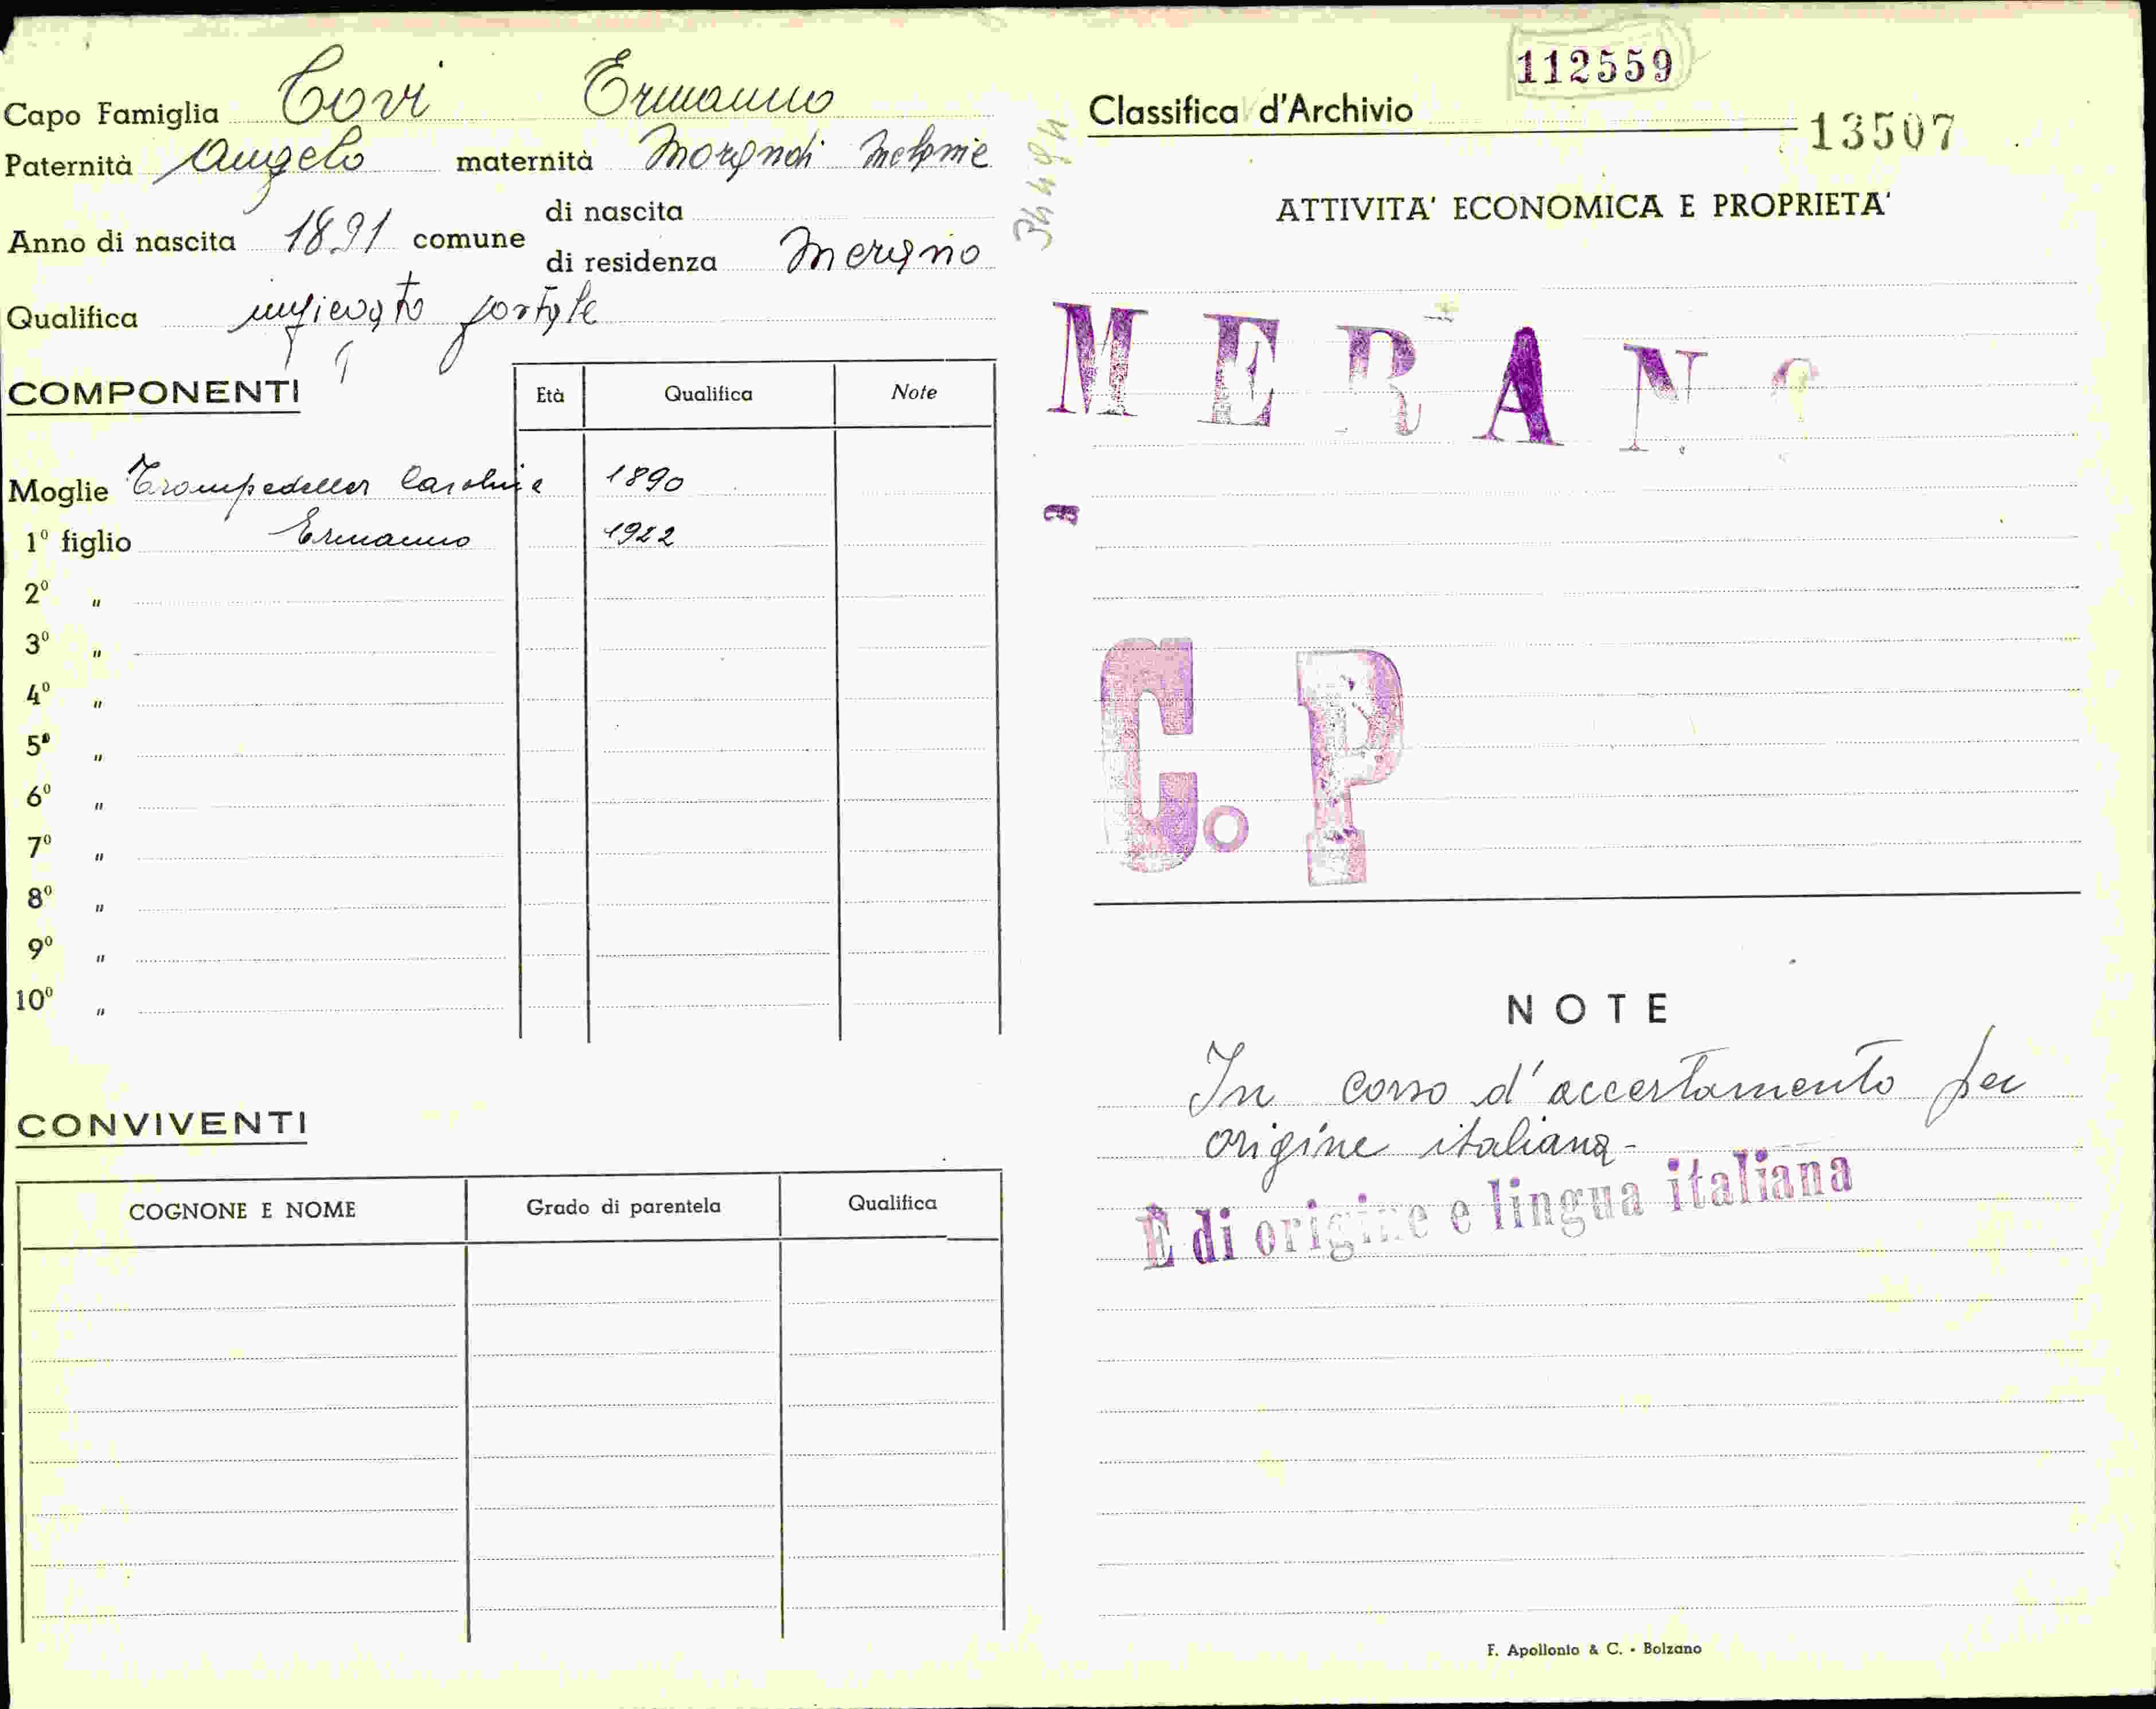 Capo Famiglia Covi Ermanno
Paternità Angelo maternità Morandi Melanie
Anno di nascita 1891 comune di nascita
di residenza Merano
Qualifica impiegato postale
COMPONENTI
Età Qualifica Note
Moglie Trompedeller Carolina 1890
1º figlio Ermanno 1922
2º "
3º "
4º "
5º "
6º "
7º "
8º "
9º "
10º "
CONVIVENTI
COGNONE E NOME Grado di parentela Qualifica
112559
Classifica d'Archivio
13507
ATTIVITA' ECONOMICA E PROPRIETA'
MERANO
C.P
NOTE
In corso d'accertamento per
origine italiana -
È di origine e lingua italiana
F. Apollonio & C. - Bolzano